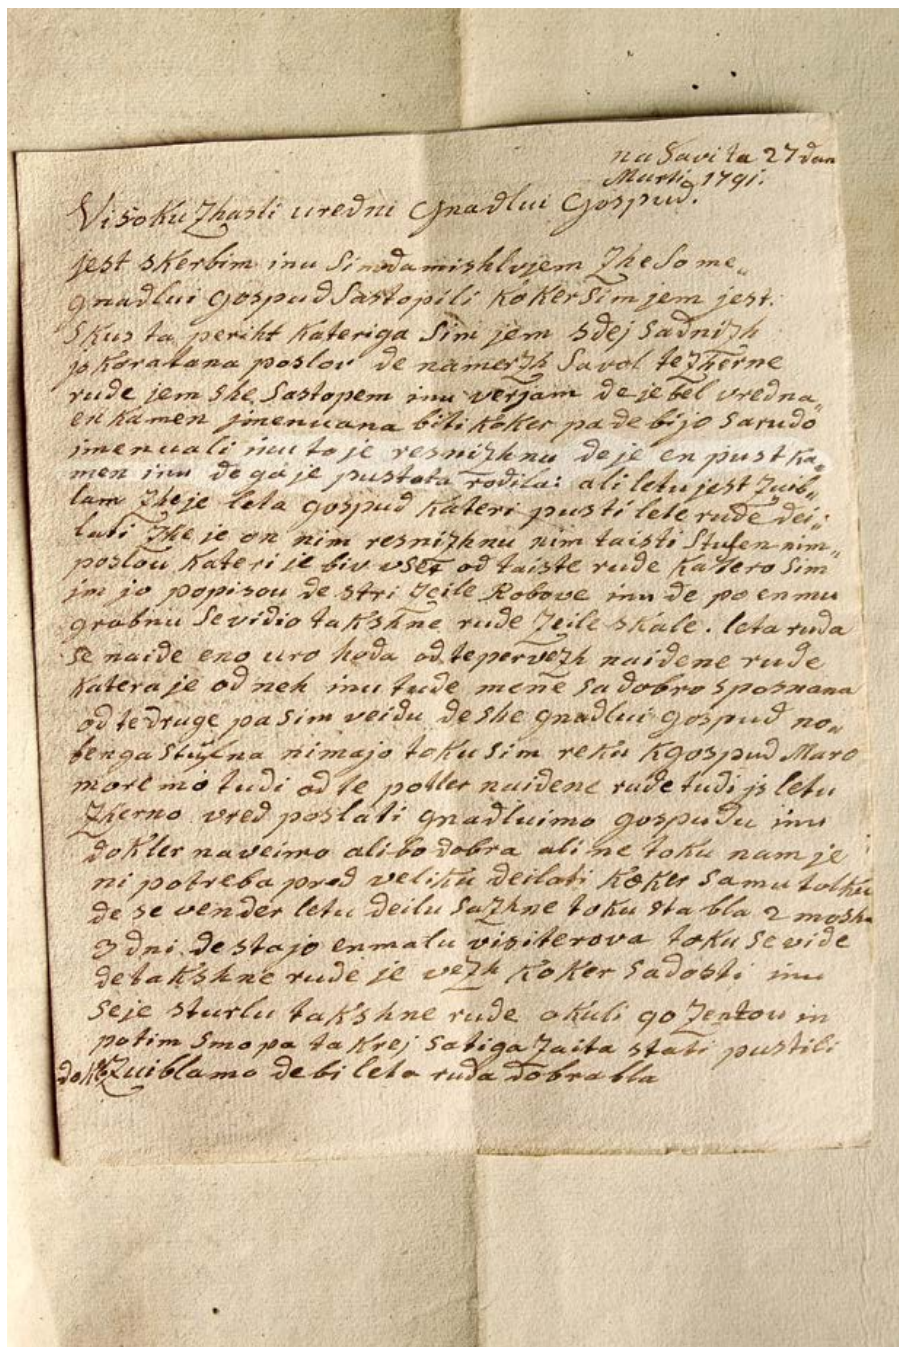 na Savi ta 27 dan
Marti 1791.
Visoku Zhasti uredni Gnadlui Gospud.
jest skerbim inu Simdamishlvjem Zhe So me„
gnadlui Gospud Sastopili koker Sim jem jest
skus ta periht kateriga Sim jem sdej sadnizh
jo Koratana poslov de namerzh Savol te Zherne
rude jem she Sastopem inu verjam de je bel vredna„
en kamen jmenuana biti koker pa de bi jo sarudo
jmenuali inu to je resnizhnu de je en pust ka„
men inu de ga je pustota rodila: ali letu jest Zuib„
lam Zhe je leta gospud kateri pusti lete rude dei„
lati Zhe je on nim resnizhnu nim taisti Stufen nim„
poslou kateri je biv vset od taiste rude katero Sim
jm jo popisou de stri Zeile Robove inu de po enmu
grabnu Se vidio takshne rude Zeile skale. leta ruda
se naide eno uro hoda od te pervezh naidene rude
katera je od neh inu tude mene sa dobro sposnana
od te druge pa sim veidu de she gnadlui gospud no„
benga Stufna nimajo toku sim reku kgospud Maro
moremo tudi od te potler naidene rude tudi js letu
Zherno vred poslati gnadluimo gospudu inu
dokler naveimo ali bo dobra ali ne toku nam je
ni potreba pred veliku deilati koker samu tolku
de se vender letu deilu sazhne toku sta bla 2 mosha
3 dni de stajo enmalu visiterova toku se vide
de takshne rude je vezh koker sadosti inu
se je sturlu takshne rude okuli 90 Zentou in
potim smo pa ta krej satiga Zaita stati pustili
Zuiblamo de bi leta ruda dobra bla